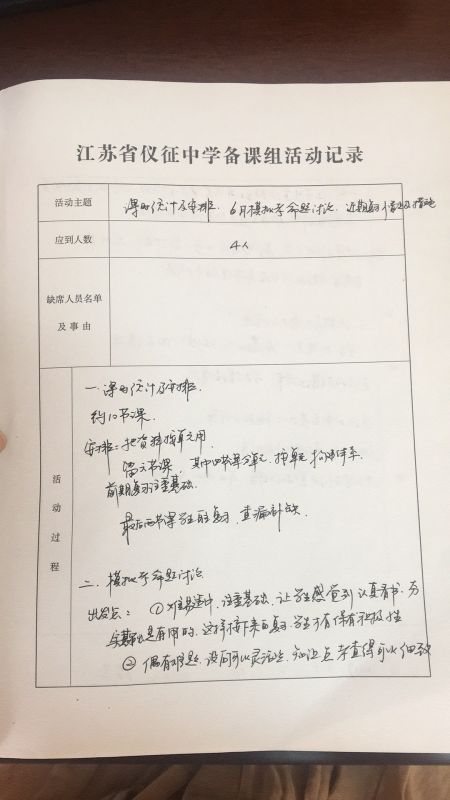 江苏省仪征中学备课组活动记录
活动主题 课时统计及安排、6月模拟考命题讨论、近期复习情况及措施
应到人数 4人
缺席人员名单
及事由
活动过程
一、课时统计及安排
约10节课
安排：把资料按单元用
留六节课，其中四节课分单元，按单元
前期复习注重基础
最后两节课学生自主复习，查漏补缺
二、模拟考命题讨论
出发点：①难易适中，注重基础，让学生感觉到认真看书，夯
实基础是有用的，这样接下来的复习，学生才有保有积极性
②偶有难题，设问可以灵活些，知识点考查得可以细致